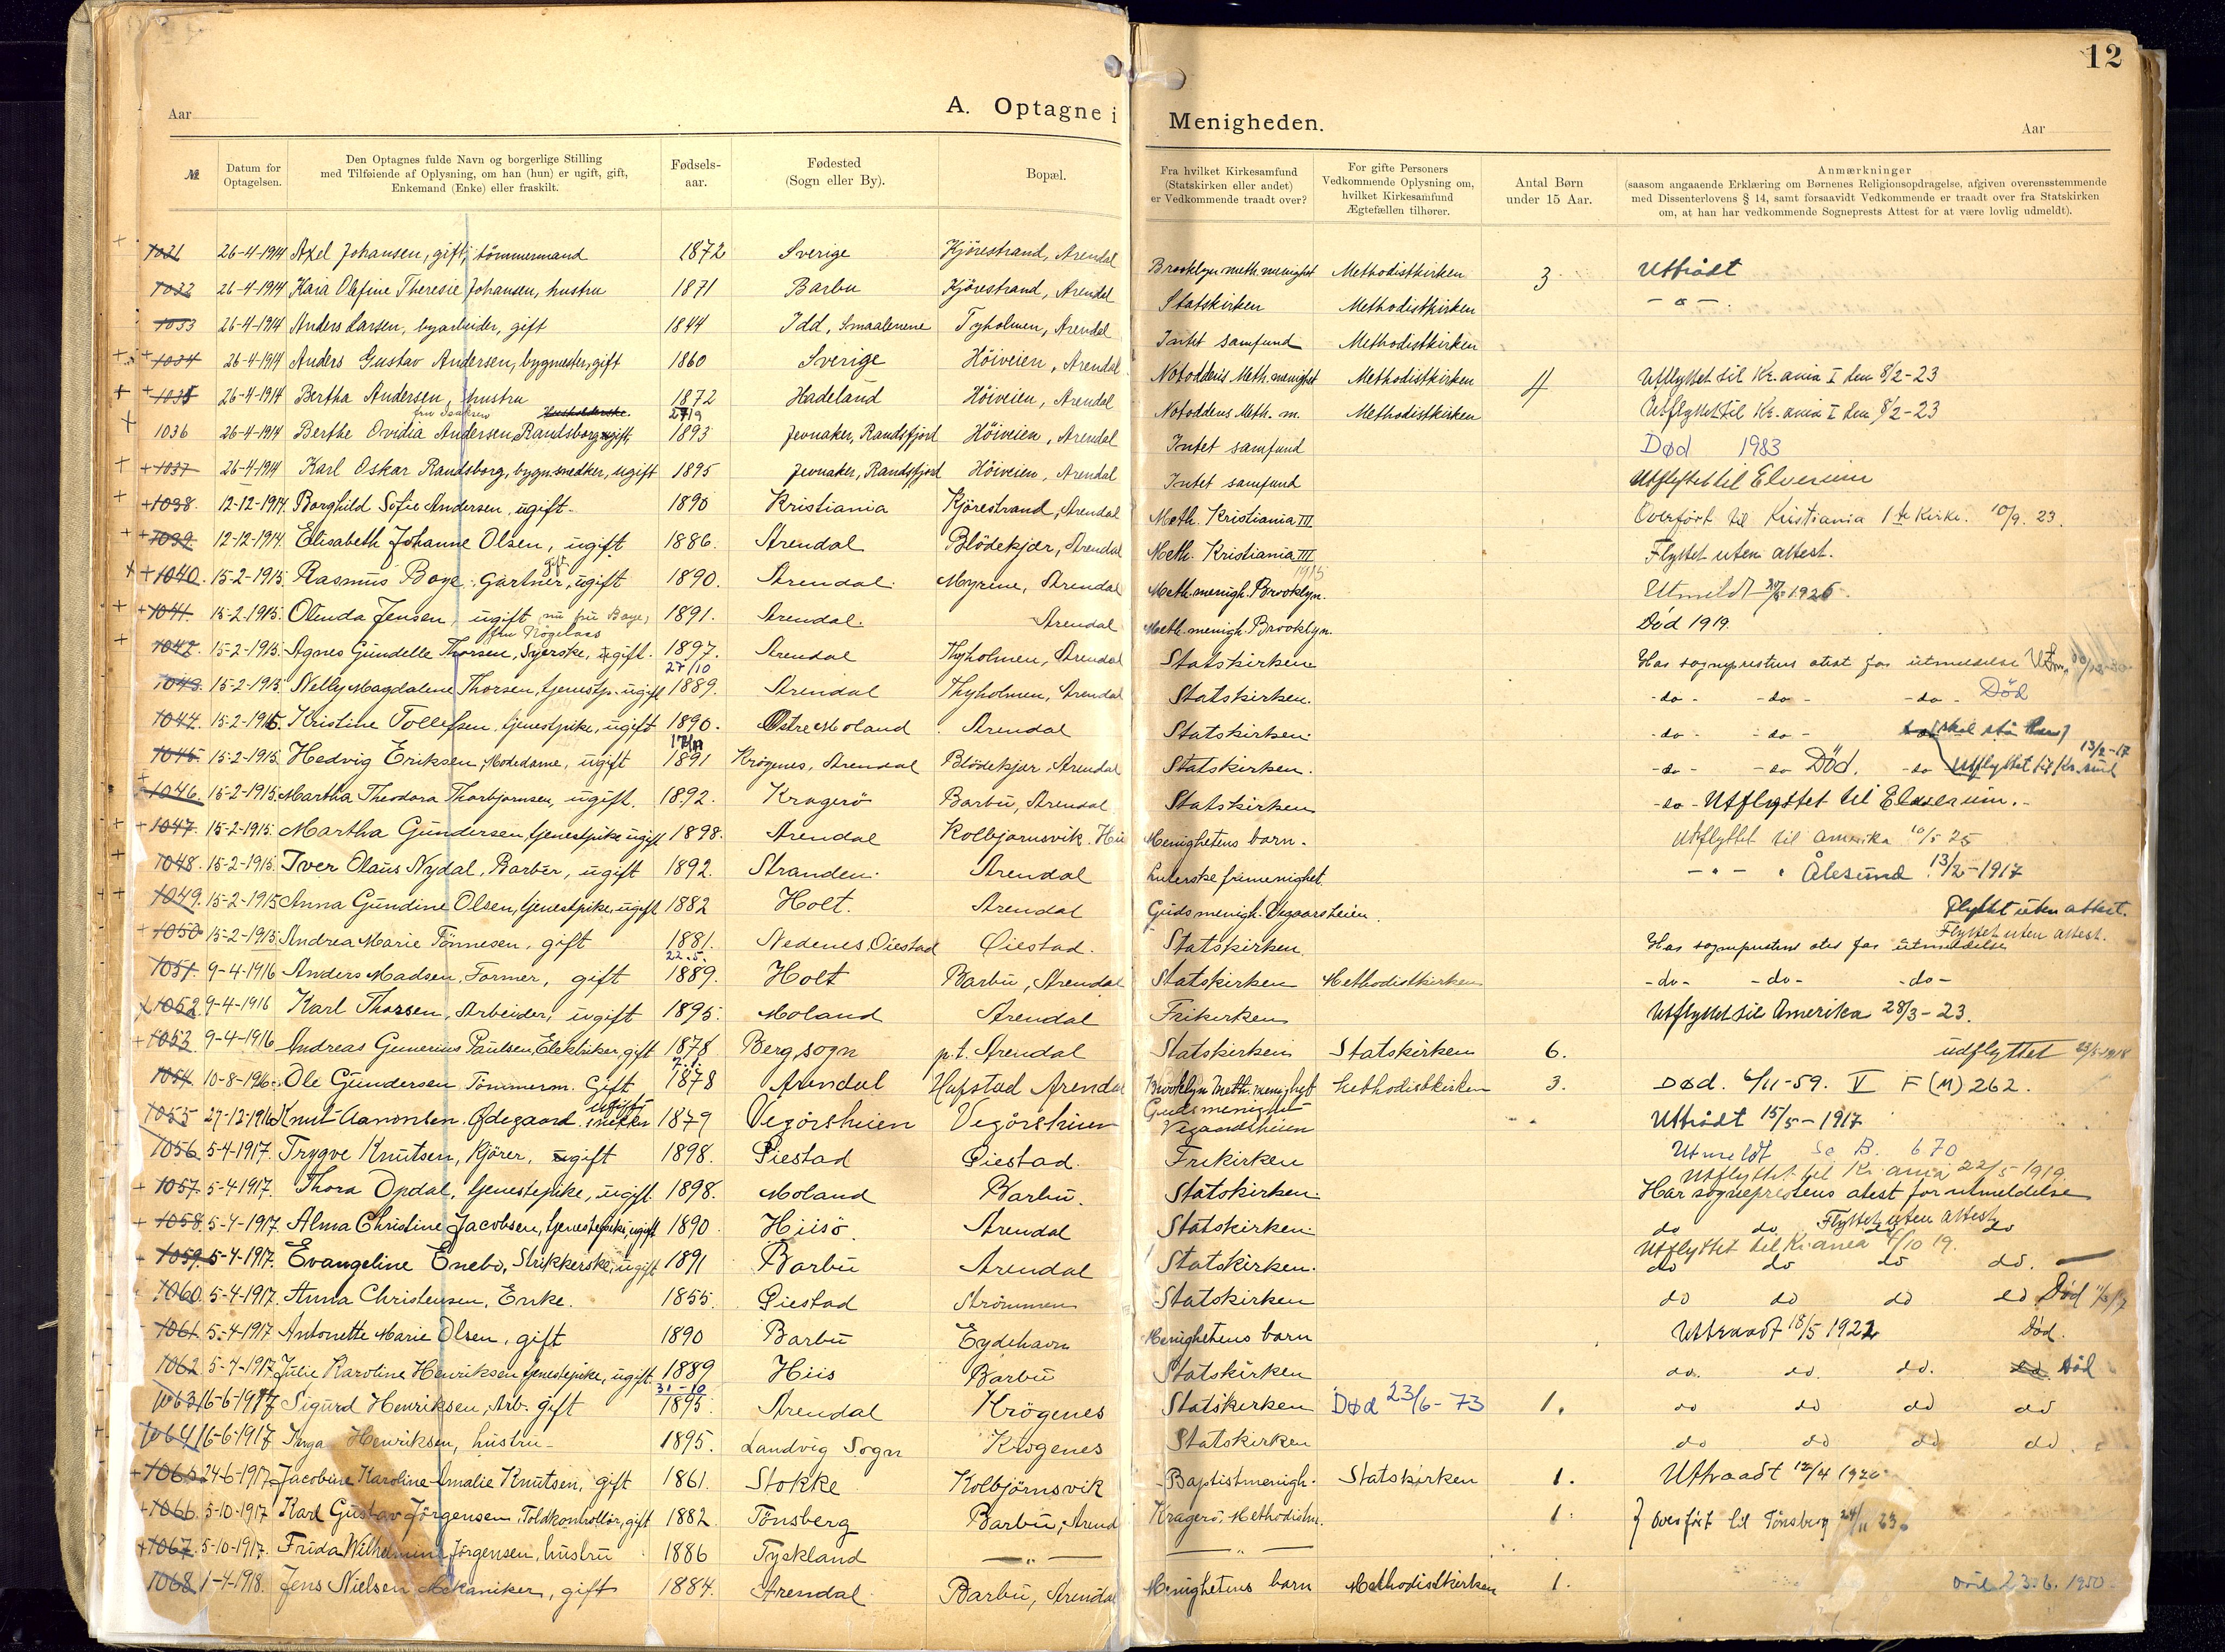 12
Aar
A. Optagne i Menigheden.
Aar
№
Datum for Optagelsen.
Den Optagnes fulde Navn og borgerlige Stilling med Tilføiende af Oplysning, om han (hun) er ugift, gift, Enkemand (Enke) eller fraskilt.
Fødselsaar.
Fødested (Sogn eller By).
Bopæl.
Fra hvilket Kirkesamfund (Statskirken eller andet) er Vedkommende traadt over?
For gifte Personers Vedkommende Oplysning om, hvilket Kirkesamfund Ægtefællen tilhører.
Antal Børn under 15 Aar.
Anmærkninger (saasom angaaende Erklæring om Børnenes Religionsopdragelse, afgiven overensstemmende med Dissenterlovens § 14, samt forsaavidt Vedkommende er traadt over fra Statskirken om, at han har vedkommende Sogneprests Attest for at være lovlig udmeldt).
1031 26-4-1914 Axel Johansen, gift, tömmermand 1872 Sverige Kjörestrand, Arendal Brooklyn meth. menighet Methodistkirken 3 Uttrådt
1032 26-4-1914 Kaia Olefine Theresie Johansen, hustru 1871 Barbu Kjörestrand, Arendal Statskirken Methodistkirken - " -
1033 26-4-1914 Anders Larsen, byarbeider, gift 1844 Idd, Smaalenene Tyholmen, Arendal Intet samfund Methodistkirken
1034 26-4-1914 Anders Gustav Andersen, bygmester, gift 1860 Sverige Höiveien, Arendal Notoddens Meth. menighet Methodistkirken 4 Utflyttet til Kr.ania I den 8/2-23
1035 26-4-1914 Bertha Andersen, hustru 1872 Hadeland Höiveien, Arendal Notoddens Meth. m. Methodistkirken Utflyttet til Kr.ania I den 8/2-23
fru Isaksen Husholderske 27/9
1036 26-4-1914 Berthe Ovidia Andersen Randsborg ugift, 1893 Jevnaker, Randsfjord Höiveien, Arendal Intet samfund Død 1983
1037 26-4-1914 Karl Oskar Randsborg, bygn.snedker, ugift 1895 Jevnaker, Randsfjord Höiveien, Arendal Intet samfund Utflyttet til Elverum
1038. 12-12-1914. Borghild Sofie Andersen, ugift. 1890 Kristiania Kjörestrand, Arendal Meth. Kristiania III Overført til Kristiania 1ste Kirke. 10/9. 23.
1039. 12-12-1914. Elisabeth Johanne Olsen, ugift 1886. Arendal Blödekjær, Arendal Meth. Kristiania III Flyttet uten attest.
gift 1915
1040. 15-2-1915 Rasmus Boye, Gartner, ugift 1890. Arendal. Myrene, Arendal Meth. menigh. Brooklyn. Utmeldt 1926.
1041. 15-2-1915. Olenda Jensen, ugift nu fru Boye, 1891. Arendal. Arendal Meth. menigh. Brooklyn. Död 1919.
1042. 15-2-1915. Agnes Gundelle Thorsen, Syerske, ugift. 1897. Arendal Thyholmen, Arendal Statskirken Has sogneprestens atest for utmeldelse
27/10
1043. 15-2-1915 Nelly Magdalene Thorsen, tjenestp. ugift 1889. Arendal Thyholmen, Arendal Statskirken. -do- -do- -do- Död
1044. 15-2-1915. Kristine Tollefsen, tjenestpike, ugift 1890. Östre Moland Arendal Statskirken. -do- -do-
1045. 15-2-1915. Hedvig Eriksen, Modedame, ugift 1891 Krögenes, Arendal Blödekjær, Arendal Statskirken. -do- -do- Död. -do- Utflyttet til Kr.sund 13/2-17
1046. 15-2-1915. Martha Theodora Thorbjornsen, ugift. 1892. Kragerö Barbu, Arendal Statskirken -do- Utflyttet til Elverum.
1047. 15-2-1915. Martha Gundersen, tjenestpike ugift 1898. Arendal Kolbjornsvik. His Menighetens barn. Utflyttet til Amerika 10/5 25
1048. 15-2-1915. Iver Olaus Nydal, Barber, ugift 1892. Stranden. Arendal Luterske frimenighet. - " - " Ålesund 13/2-1917
1049. 15-2-1915 Anna Gundine Olsen, tjenestpike, ugift 1882 Holt. Arendal Guds menigh. Vegaarsheien. Flyttet uten attest.
1050 15-2-1915 Andrea Marie Tönnesen, gift 1881. Nedenes, Öiestad Öiestad. Statskirken. Has sogneprestens atest for utmeldelse Flyttet uten attest.
22.5.
1051. 9-4-1916 Anders Madsen, Former, gift 1889. Holt Barbu, Arendal Statskirken Methodistkirken -do- -do- -do-
1052 9-4-1916 Karl Thorsen, Arbeider, ugift 1895. Moland Arendal Frikirken Utflyttet til Amerika 28/3-23.
1053 9-4-1916 Andreas Gunerius Paulsen, Elektriker, gift 1878 Berg sogn p.t. Arendal Statskirken Statskirken 6. udflyttet
1054 10-8-1916 Ole Gundersen Tömmerm. Gift 1878 Arendal Hufstad Arendal Brooklyn Meth. menighet Methodistkirken 3. Død. 6/11-59. V F (M) 262.
1055 27-12-1916 Knut Aanonsen Ødegaard ugift snekker 1879 Vegårsheien Vegårsheien Gudsmenighet Vegaardsheien Uttrådt 15/5-1917
1056. 5-4-1917. Trygve Knutsen, Kjörer, ugift 1898. Öiestad Öiestad. Frikirken Utmeldt B. 670
Utflyttet til Kr.ania 22/5 1919.
1057. 5-4-1917. Thora Opdal, tjenestepike, ugift. 1898. Moland Barbu. Statskirken. Har sogneprestens atest for utmeldelse
1058. 5-4-1917. Alma Christine Jacobsen, tjenestepike, ugift 1890. Hiisö. Arendal Statskirken. do do Flyttet uten attest do
Utflyttet til Kr.ania 4/10 19.
1059. 5-4-1917. Evangeline Enebo, Strikkerske, ugift 1891 Barbu Arendal Statskirken. do do do do.
1060. 5-4-1917. Anna Christensen, Enke. 1855. Öiestad Strömmen Statskirken do do do do Död
1061. 5-4-1917 Antonette Marie Olsen, gift 1890 Barbu Eydehavn Menighetens barn Uttraadt 18/5 1922 Död.
1062. 5-4-1917. Julie Karoline Henriksen tjenestepike, ugift. 1889 Hiis Barbu Statskirken do. do. do. do Död
31-10
1063 16-6-1917 Sigurd Henriksen, Arb. gift 1895. Arendal Krögenes Statskirken Død 23/6-73 1. do do do do
1064 16-6-1917 Inga Henriksen, hustru 1895. Landvig Sogn Krögenes Statskirken do do do do.
1065 24-6-1917. Jacobine Karoline Amalie Knutsen, gift 1861. Stokke Kolbjörnsvik Baptistmenigh. Statskirken 1. Uttraadt 12/4 1920
1066. 5-10-1917 Karl Gustav Jörgensen, Toldkontrollör, gift 1882. Tönsberg Barbu, Arend Kragerö, Methodistm. 1. } Overført til Tönsberg 24/11 23.
1067. 5-10-1917. Frida Wilhelmine Jörgensen, hustru 1886 Tyskland — " — — " —
1068. 1-4-1918. Jens Nielsen Mekaniker, gift 1884. Arendal. Barbu, Arendal Menighetens barn Methodistkirken 1. Död 23.6.1950.